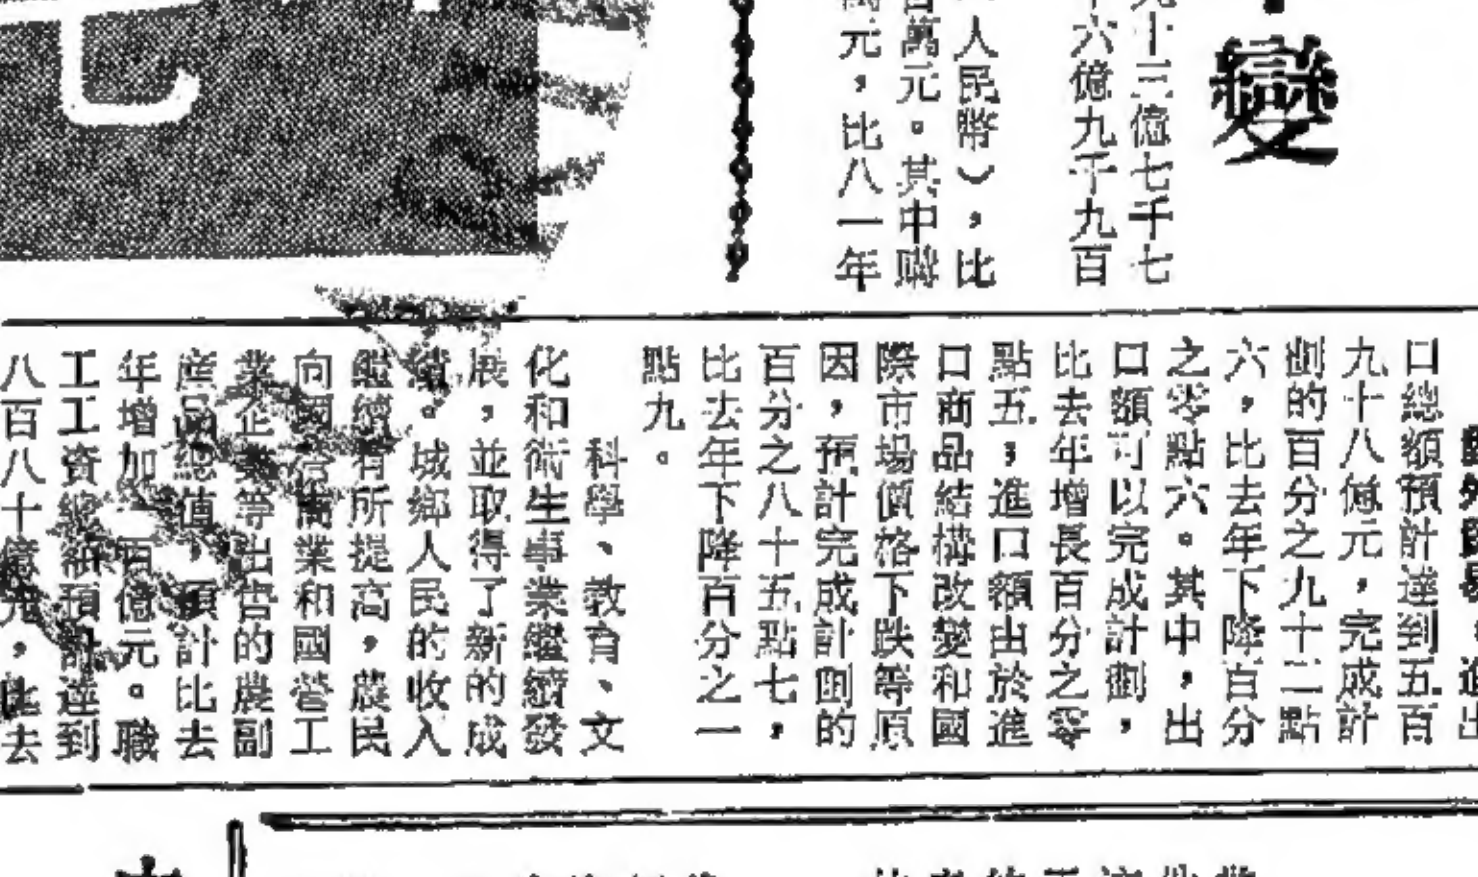 變
十三億七千七
六億九千九百
人民幣），比
百萬元。其中購
萬元，比八一年
口總額預計達到五百
九十八億元，完成計
劃的百分之九十二點
六，比去年下降百分
之零點六。其中，出
口額可以完成計劃，
比去年增長百分之零
點五；進口額由於進
口商品結構改變和國
際市場價格下跌等原
因，預計完成計劃的
百分之八十五點七，
比去年下降百分之一
點九。
科學、教育、文
化和衛生事業繼續發
展，並取得了新的成
績。城鄉人民的收入
繼續有所提高，農民
向國信商業和國營工
業企業等出售的農副
產品總值，預計比去
年增加一百億元。職
工工資總額預計達到
八百八十億元，比去